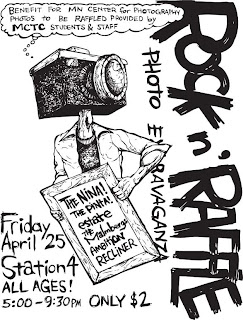 BENEFIT FOR MN CENTER FOR PHOTOGRAPHY
PHOTOS TO BE RAFFLED PROVIDED by
MCTC STUDENTS & STAFF
ROCK n' RAFFLE
PHOTO EXTRAVAGANZA
THE NINA!
THE PINTA!
estate
THE
AMBITION
RECLINER
Friday
April 25
Station 4
ALL AGES!
5:00-9:30PM ONLY $2